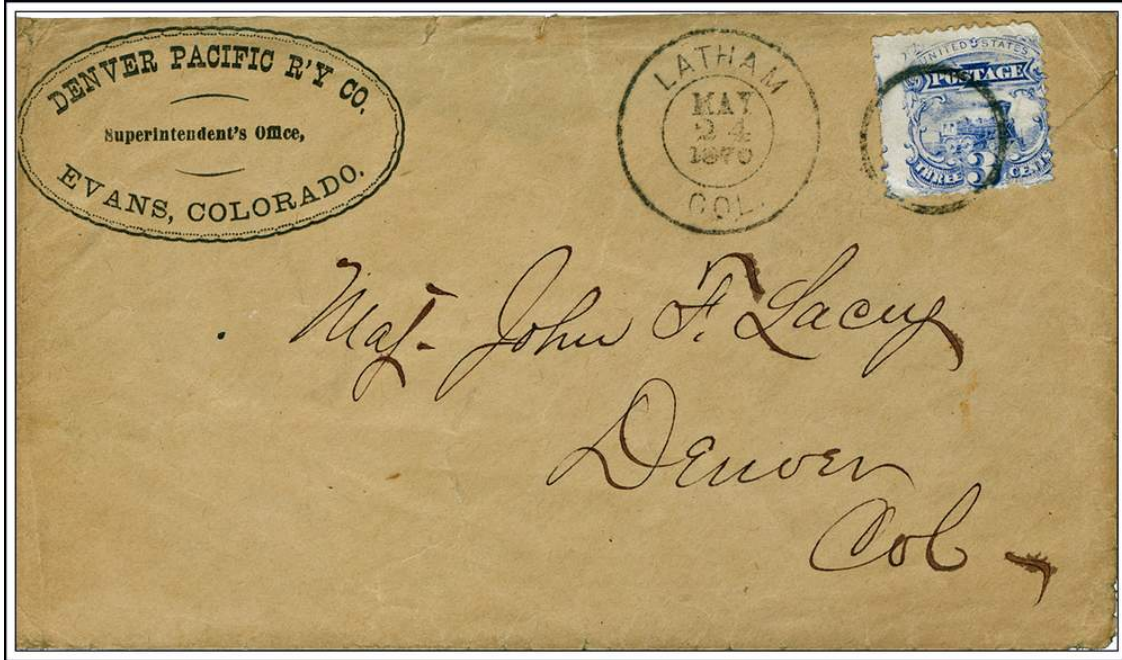 DENVER PACIFIC R'Y CO.
Superintendent's Office,
EVANS, COLORADO.
LATHAM
MAY
24
1870
COL.
UNITED STATES
POSTAGE
THREE 3 CENTS
Maj. John F. Lacey
Denver
Col